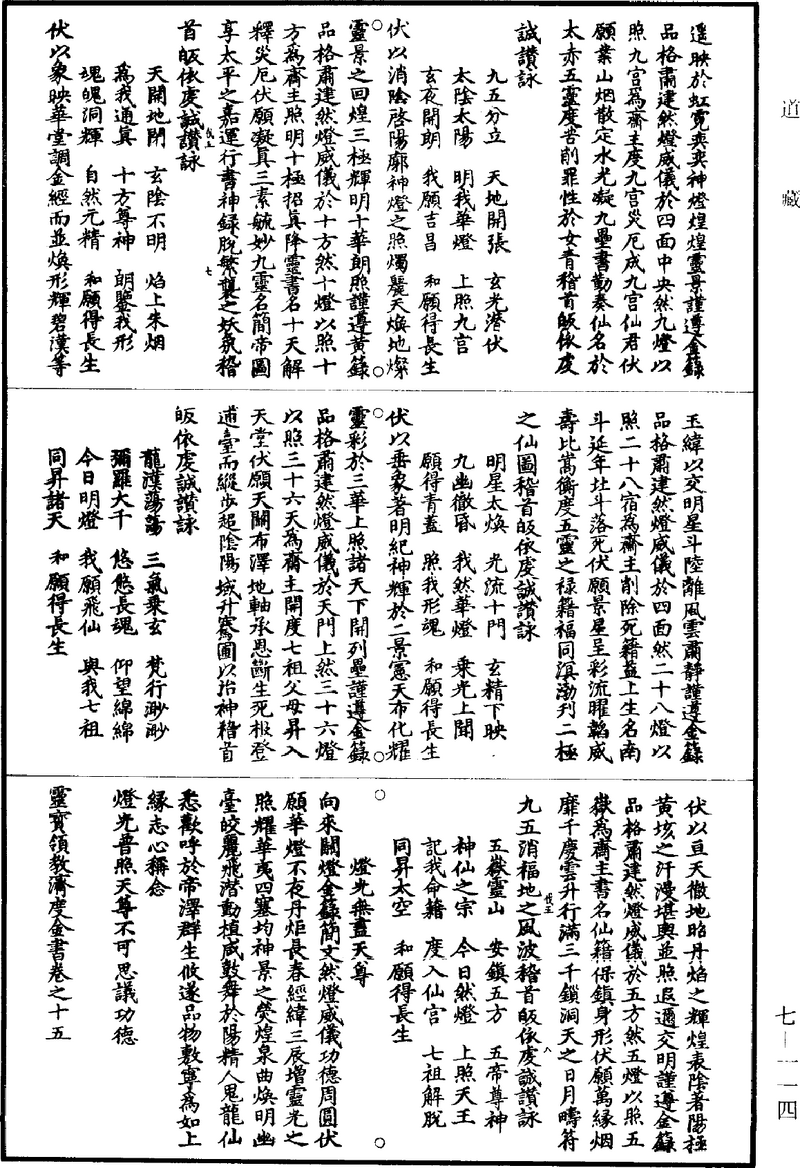 道藏
遥映於虹霓奕奕神燈煌煌靈景謹遵金籙
品格肅建然燈威儀於四面中央然九燈以
照九宮為齋主度九宮災厄成九宮仙君伏
願業山烟散定水光凝九壘書勤奏仙名於
太赤五靈度苦削罪性於女青稽首皈依虔
誠讚詠
九五分立　天地開張　玄光潛伏
太陰太陽　明我華燈　上照九宮
玄夜開朗　我願吉昌　和願得長生
伏以消陰啓陽廓神燈之照燭麗天煥地燦
靈景之回煌三極輝明十華朗照謹遵黃籙
品格肅建然燈威儀於十方然十燈以照十
方為齋主照明十極招真降靈書名十天解
釋災厄伏願凝真三素毓妙九靈名簡帝圖
享太平之嘉運行書神錄脫繁襲之妖氛稽
首皈依虔誠讚詠
七
天開地閉　玄陰不明　焰上朱烟
為我通真　十方尊神　朗鑒我形
魂魄洞輝　自然元精　和願得長生
伏以象映華堂調金經而並煥形輝碧漢等
玉緯以交明星斗陸離風雲肅靜謹遵金籙
品格肅建然燈威儀於四面然二十八燈以
照二十八宿為齋主削除死籍益上生名南
斗延年北斗落死伏願景星呈彩流曜韜威
壽比嵩衡度五靈之祿籍福同溟渤列二極
之仙圖稽首皈依虔誠讚詠
明星太煥　光流十門　玄精下映
九幽徹昏　我然華燈　乘光上聞
願得青蓋　照我形魂　和願得長生
伏以垂象著明紀神輝於二景憲天布化耀
靈彩於三華上照諸天下開列壘謹遵金籙
品格肅建然燈威儀於天門上然三十六燈
以照三十六天為齋主開度七祖父母昇入
天堂伏願天關布澤地軸承恩斷生死根登
逍臺而縱步超陰陽域升騫圃以怡神稽首
皈依虔誠讚詠
龍漢蕩蕩　三氣乘玄　梵行渺渺
彌羅大千　悠悠長魂　仰望綿綿
今日明燈　我願飛仙　與我七祖
同昇諸天　和願得長生
伏以亘天徹地昭丹焰之輝煌表陰著陽極
黃垓之汗漫堪輿並照遐邇交明謹遵金籙
品格肅建然燈威儀於五方然五燈以照五
嶽為齋主書名仙籍保鎮身形伏願萬緣烟
靡千慶雲升行滿三千鎖洞天之日月疇符
九五消福地之風波稽首皈依虔誠讚詠
八
五嶽靈山　安鎮五方　五帝尊神
神仙之宗　今日然燈　上照天王
記我命籍　度入仙宮　七祖解脫
同昇太空　和願得長生
燈光無盡天尊
向來關燈金籙簡文然燈威儀功德周圓伏
願華燈不夜丹炬長春經緯三辰增靈光之
照耀華夷四塞均神景之熒煌泉曲煥明幽
臺皎麗飛潛動植咸鼓舞於陽精人鬼龍仙
悉歡呼於帝澤群生攸遂品物敷寧為如上
緣志心稱念
燈光普照天尊不可思議功德
靈寶領教濟度金書卷之十五
七—一—四